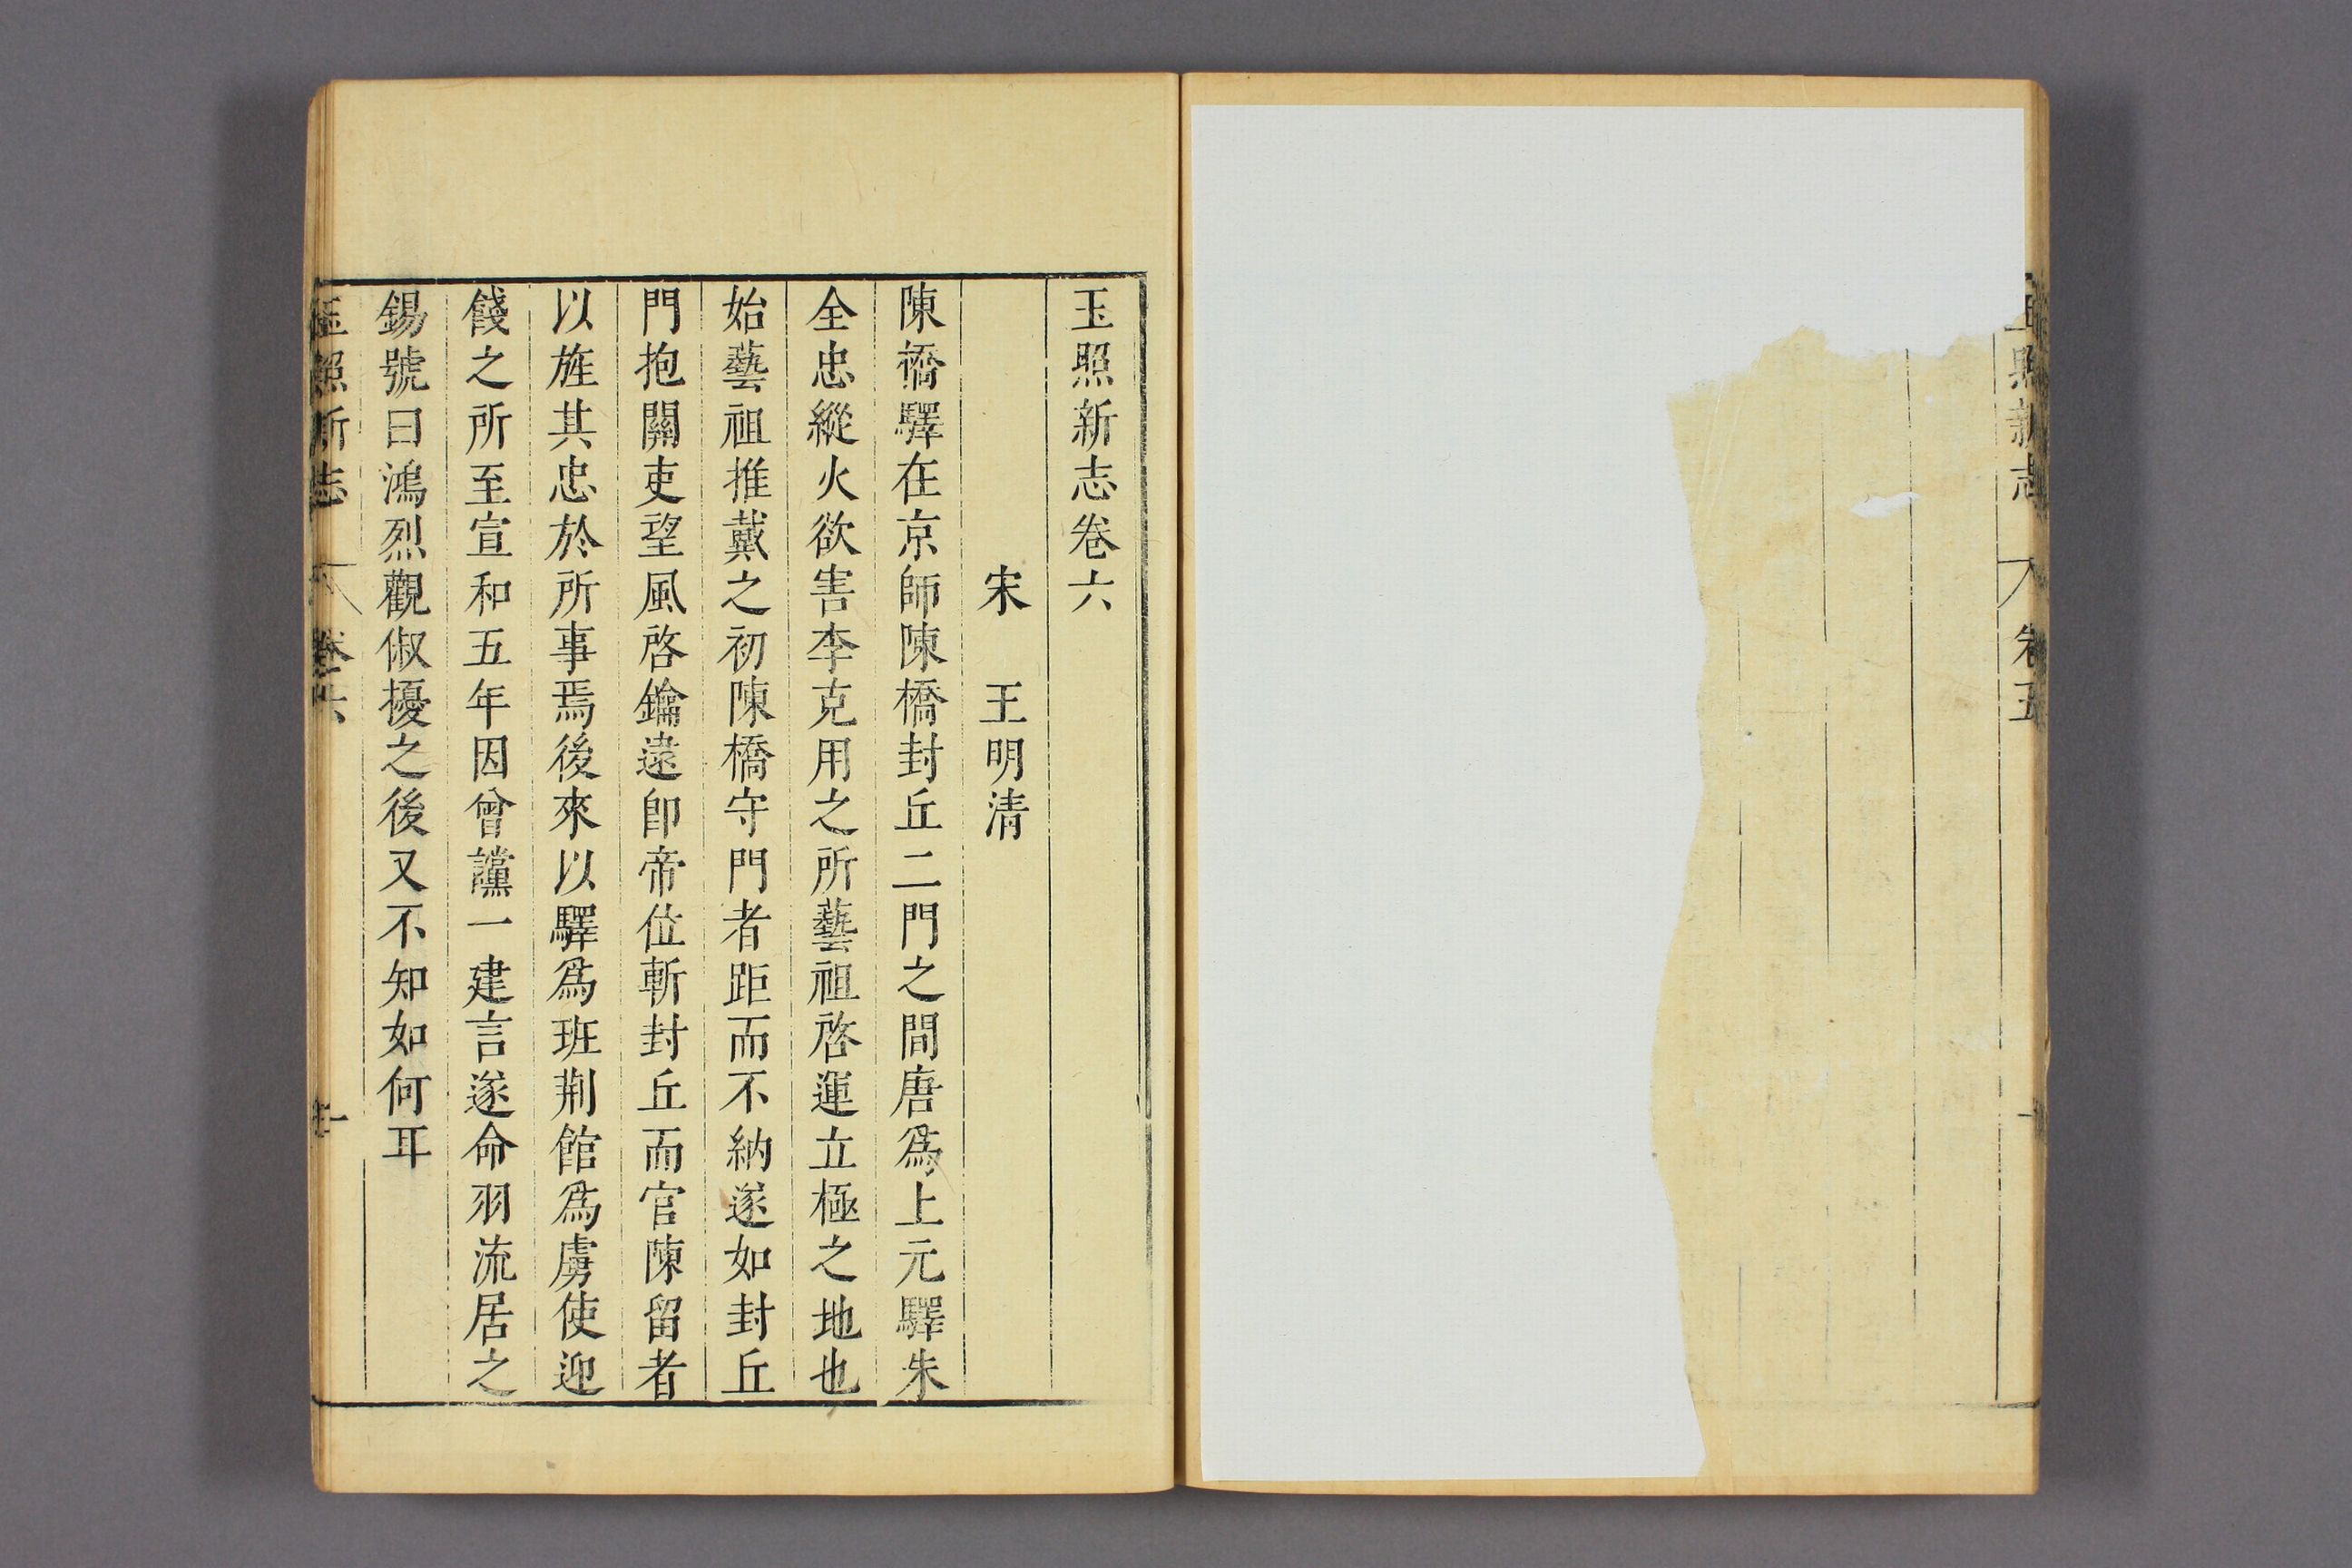 玉照新志
卷五
一
玉照新志卷六
宋　王明清
陳橋驛在京師陳橋封丘二門之間唐爲上元驛朱
全忠縱火欲害李克用之所藝祖啓運立極之地也
始藝祖推戴之初陳橋守門者距而不納遂如封丘
門抱關吏望風啓鑰逺卽帝位斬封丘而官陳留者
以旌其忠於所事焉後來以驛爲班荆館爲虜使迎
餞之所至宣和五年因曾讜一建言遂命羽流居之
錫號曰鴻烈觀俶擾之後又不知如何耳
玉照新志
卷六
一